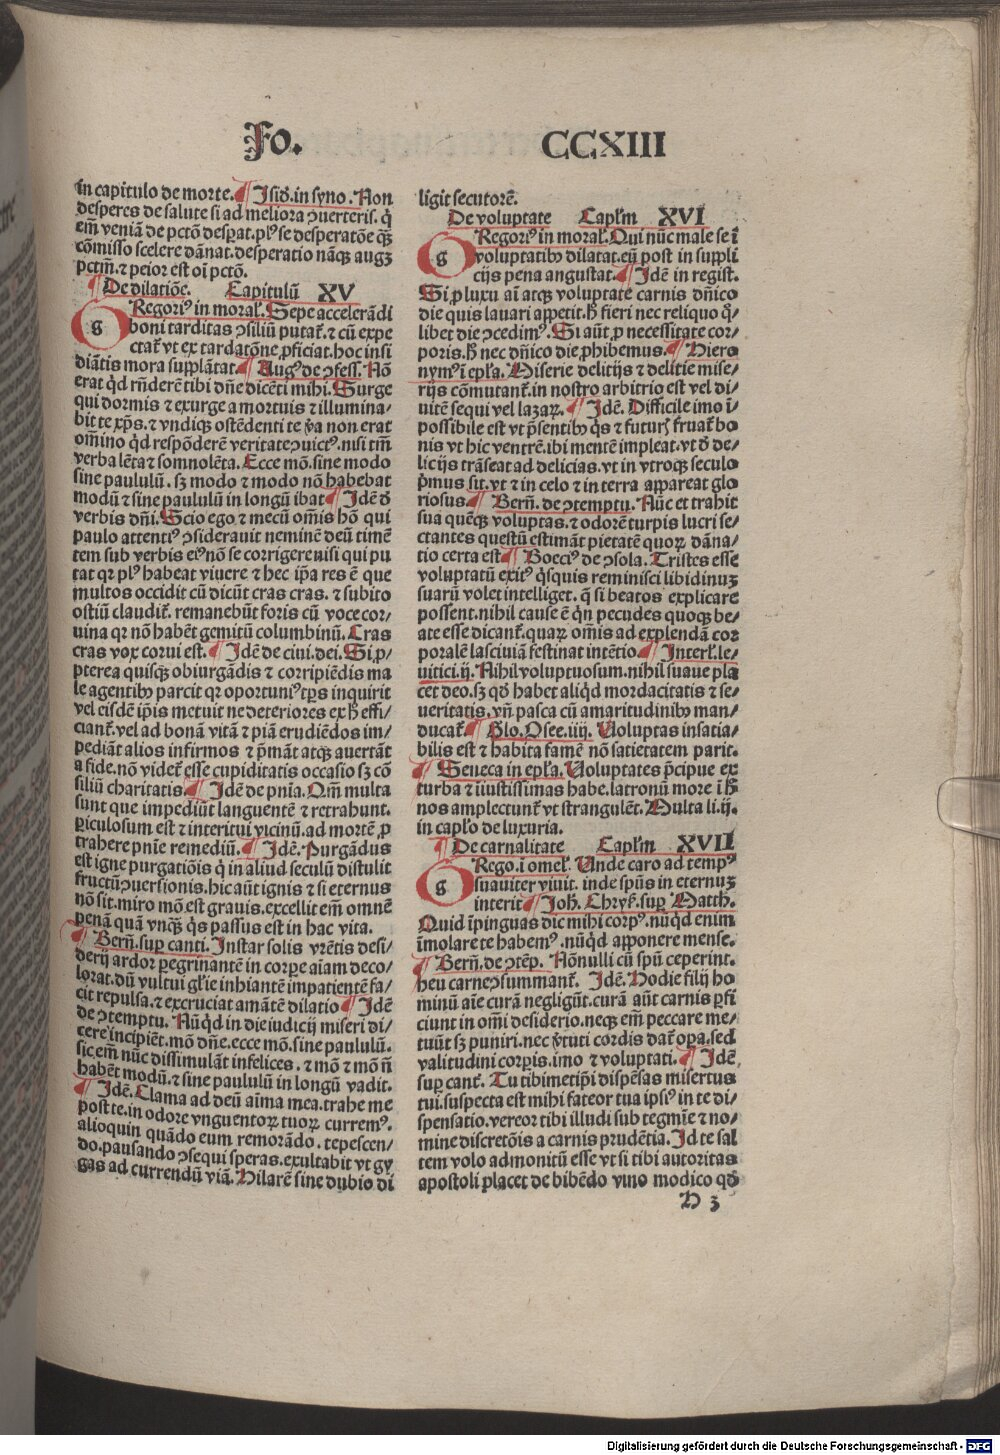 Fo. CCXIII
in capitulo de morte. ¶ Isiđ. in syno. Non
desperes de salute si ad meliora ꝯuerteris. q̈
em̄ veniā de pctō desꝑat. plꝰ se desperatōe qȝ
cōmisso scelere dānat. desperatio nāqȝ augȝ
pctm̄. ⁊ peior est oī pctō.
¶ De dilatiōe. Capitulū XV
GRegoriꝰ in moral̄. Sepe accelerādi
boni tarditas ꝯsiliū putat̄. ⁊ cū expe
ctat̄ vt ex tardatōne ꝓficiat. hoc insi
diātis mora supplātat. ¶ Augꝰ de ꝯfess. Nō
erat qđ rn̄derē tibi dn̄e dicēti mihi. Surge
qui dormis ⁊ exurge a mortuis ⁊ illumina/
bit te xp̄s. ⁊ vndiqȝ ostēdenti te ꝟa non erat
om̄ino qđ respōderē veritate ꝯuictꝰ. nisi tm̄
verba lēta ⁊ somnolēta. Ecce mō. sine modo
sine paululū. sȝ modo ⁊ modo nō habebat
modū ⁊ sine paululū in longū ibat ¶ Idē đ
verbis dn̄i. Scio ego ⁊ mecū om̄is hō qui
paulo attentiꝰ ꝯsiderauit neminē deū timē
tem sub verbis eiꝰ nō se corrigere nisi qui pu
tat qꝛ plꝰ habeat viuere ⁊ hec ip̄a res ē que
multos occidit cū dicūt cras cras. ⁊ subito
ostiū claudit̄. remanebūt foris cū voce cor/
uina qꝛ nō habēt gemitū columbinū. Cras
cras vox corui est. ¶ Idē de ciui. dei. Si ꝓ/
pterea quisqȝ obiurgādis ⁊ corripiēdis ma
le agentibꝰ parcit qꝛ oportuniꝰ tp̄s inquirit
vel eisdē ip̄is metuit ne deteriores ex h̄ effi/
ciant̄. vel ad bonā vitā ⁊ piā erudiēdos im/
pediāt alios infirmos ⁊ p̄māt atqȝ auertāt
a fide. nō videt̄ esse cupiditatis occasio sȝ cō
siliū charitatis. ¶ Idē de pnīa. Qm̄ multa
sunt que impediūt languentē ⁊ retrahunt.
ꝑiculosum est ⁊ interitui vicinū. ad mortē ꝓ
trahere pnīe remediū. ¶ Idē. Purgādus
est igne purgatiōis q̇ in aliud seculū distulit
fructū ꝯuersionis. hic aūt ignis ⁊ si eternus
nō sit. miro mō est grauis. excellit em̄ omnē
penā quā vnqȝ q̇s passus est in hac vita.
¶ Bern̄. sup canti. Instar solis vrētis desi/
derij ardor ꝑegrinantē in corpe aīam deco/
lorat. dū vultui glīe inhiantē impatientē fa/
cit repulsa. ⁊ excruciat amātē dilatio ¶ Idē
de ꝯtemptu. Nūqđ in die iudicij miseri di/
cere incipiēt. mō dn̄e. ecce mō. sine paululū.
sic em̄ nūc dissimulāt infelices. ⁊ mō ⁊ mō n̄
habēt modū. ⁊ sine paululū in longū vadit.
¶ Idē. Clama ad deū aīma mea. trahe me
post te. in odore vnguentoꝝ tuoꝝ curremꝰ.
alioquin quādo eum remorādo. tepescen/
do. pausando ꝯsequi speras. exultabit vt gy
gas ad currendū viā. Hilarē sine dubio di
ligit secutorē.
De voluptate Caplm̄ XVI
GRegoriꝰ in moral̄. Qui nūc male se ī
voluptatibꝰ dilatat. eū post in suppli
cijs pena angustat. ¶ Idē in regist.
Si ꝓ luxu aī atqȝ voluptate carnis dn̄ico
die quis lauari appetit. h̄ fieri nec reliquo q̇/
libet die ꝯcedimꝰ. Si aūt ꝓ necessitate cor/
poris. h̄ nec dn̄ico die ꝓhibemus. ¶ Hiero
nymꝰ ī epl̄a. Miserie delitijs ⁊ delitie mise/
rijs cōmutant̄. in nostro arbitrio est vel di/
uitē sequi vel lazaꝝ. ¶ Idē. Difficile imo ī/
possibile est vt p̄sentibꝰ q̇s ⁊ futuꝝ fruat̄ bo
nis vt hic ventrē. ibi mentē impleat. vt đ de/
licijs trāseat ad delicias. vt in vtroqȝ seculo
p̄mus sit. vt ⁊ in celo ⁊ in terra appareat glo
riosus. ¶ Bern̄. de ꝯtemptu. Nūc et trahit
sua quēqȝ voluptas. ⁊ odorē turpis lucri se/
ctantes questū estimāt pietatē quoꝝ dāna/
tio certa est ¶ Boeciꝰ de ꝯsola. Tristes esse
voluptatū exitꝰ q̇squis reminisci libidinuȝ
suarū volet intelliget. q̄ si beatos explicare
possent. nihil cause ē q̇n pecudes quoqȝ be/
ate esse dicant̄. quaꝝ om̄is ad explendā cor
poralē lasciuiā festinat intētio. ¶ Interl̄. le/
uitici. ij. Nihil voluptuosum. nihil suaue pla
cet deo. sȝ qđ habet aliqđ mordacitatis ⁊ se/
ueritatis. vn̄ pasca cū amaritudinibꝰ man/
ducat̄. ¶ Glo. Osee. iiij. Voluptas insatia/
bilis est ⁊ habita famē nō satietatem parit.
¶ Seneca in epl̄a. Voluptates p̄cipue ex
turba ⁊ iniustissimas habe. latronū more ī h̄
nos amplectunt̄ vt strangulēt. Multa li. ij.
in capl̄o de luxuria.
¶ De carnalitate Caplm̄ XVII
GRego. ī omel̄. Unde caro ad tempꝰ
suauiter viuit. inde spūs in eternuȝ
interit ¶ Joh̄. Chrys̄. sup Matth̄.
Quid īpinguas dic mihi corpꝰ. nūqđ enim
īmolare te habemꝰ. nūqđ apponere mense.
¶ Bern̄. de ꝯtēp. Nōnulli cū spū ceperint.
heu carne ꝯsummant̄. Idē. Hodie filij ho
minū aīe curā negligūt. curā aūt carnis ꝑfi
ciunt in om̄i desiderio. neqȝ em̄ peccare me/
tuūt sȝ puniri. nec ꝟtuti cordis dat̄ oꝑa. sed
valitudini corpis. imo ⁊ voluptati. ¶ Idē
sup cant̄. Tu tibimetip̄i dispēsas misertus
tui. suspecta est mihi fateor tua ipsiꝰ in te di/
spensatio. vereor tibi illudi sub tegmīe ⁊ no/
mine discretōis a carnis prudētia. Id te sal
tem volo admonitū esse vt si tibi autoritas
apostoli placet de bibēdo vino modico qđ
H 3
Digitalisierung gefördert durch die Deutsche Forschungsgemeinschaft - DFG